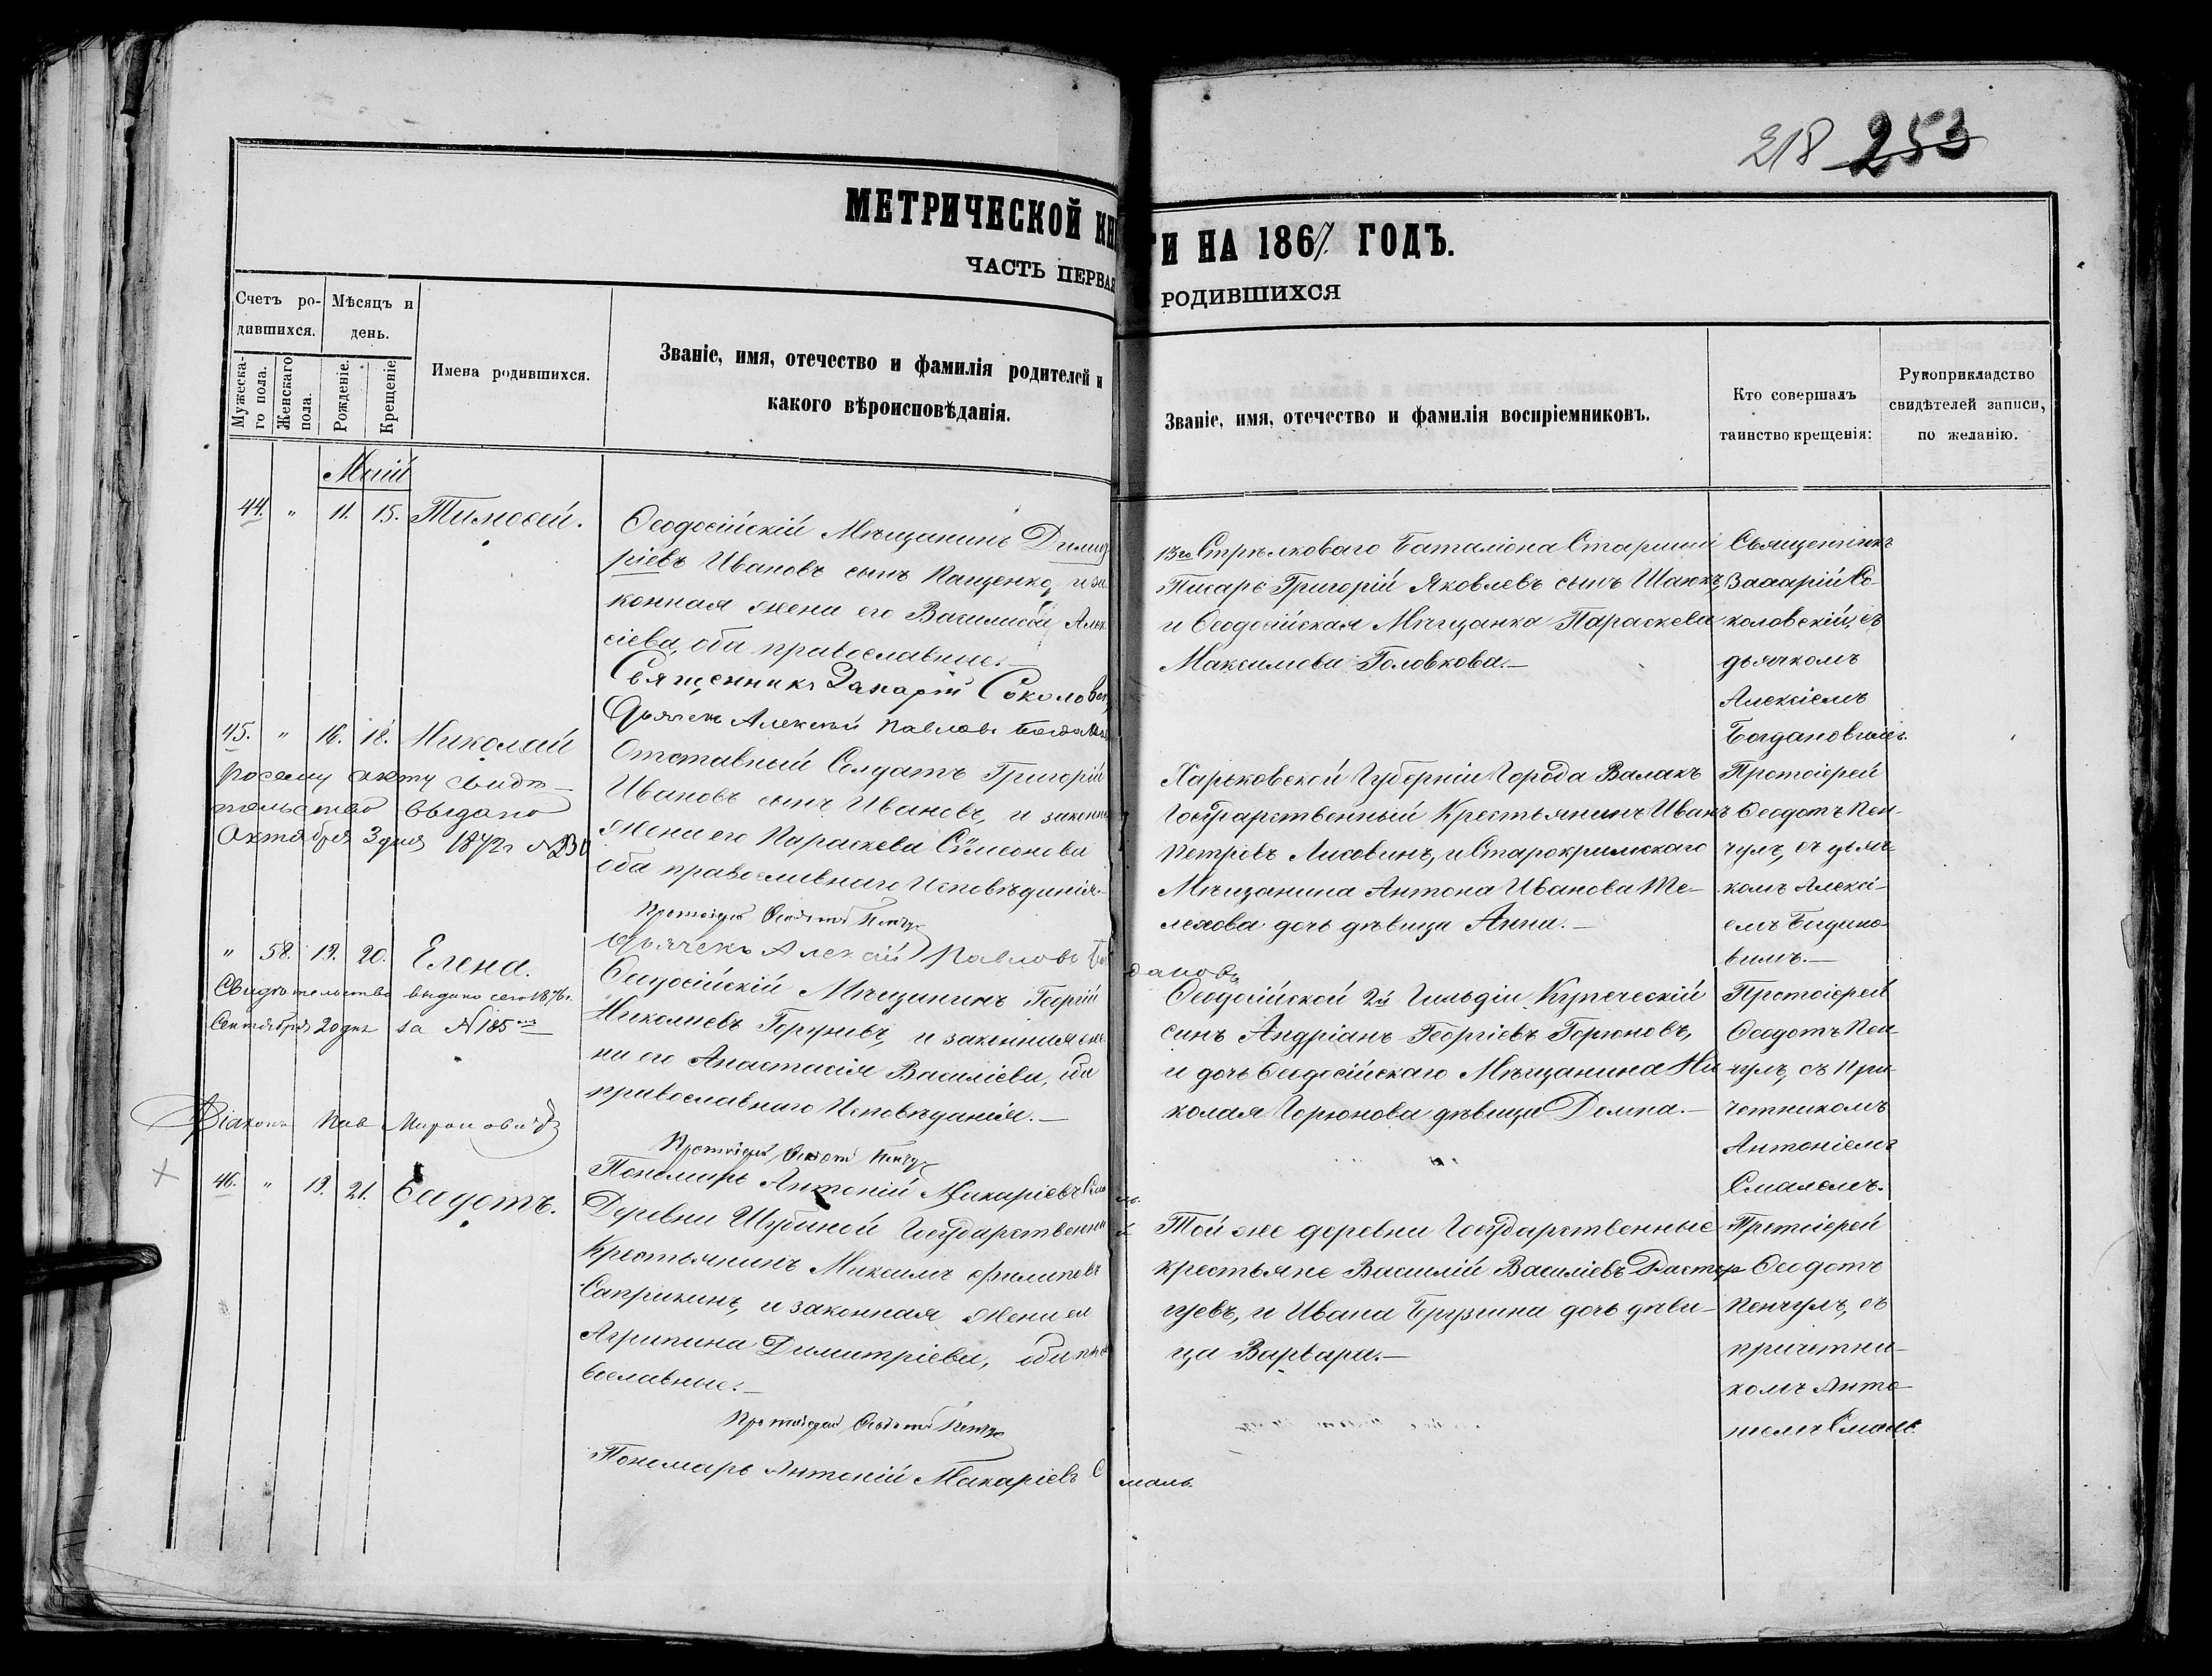 218 253
МЕТРИЧЕСКОЙ КНИГИ НА 1867 ГОДЪ.
ЧАСТЬ ПЕРВАЯ РОДИВШИХСЯ
Счетъ родившихся.
Мѣсяцъ и день.
Мужескаго пола.
Женскаго пола.
Рожденіе.
Крещеніе.
Имена родившихся.
Званіе, имя, отечество и фамилія родителей и
какого вѣроисповѣданія.
Званіе, имя, отечество и фамилія воспріемниковъ.
Кто совершалъ
таинство крещенія:
Рукоприкладство
свидѣтелей записи,
по желанію.
Маій
44. " 11. 15. Тимоѳей.
Ѳеодосійскій Мѣщанинъ Димит
ріевъ Ивановъ сынъ Пащенко, и за
конная жена его Василиса Алек
сіева, оба православные.—
Священникъ Захарій Соколовск
Дьячекъ Алексѣй Павловъ Богданов
13го Стрѣлковаго Баталіона Старшій
Писарь Григорій Яковлевъ сынъ
и Ѳеодосійская Мѣщанка Параскева
Максимова Головкова.—
Священникъ
Захарій Со-
коловскій, съ
дьячкомъ
Алексіемъ
Богдановымъ.
45. " 16. 18. Николай
По сему акту свидѣ-
тельство выдано
Октября 3 дня 1872 г №
Отставный Солдатъ Григорій
Ивановъ сынъ Ивановъ, и законная
жена его Параскева Сѵмеонова
оба православнаго Исповѣданія.—
Протоіерей Ѳеодотъ Пенчулъ
Дьячекъ Алексій Павловъ Богдановъ
Харьковской Губерніи Города Валакъ
Государственный Крестьянинъ Иванъ
Петровъ Лисовинъ, и Старокримскаго
Мѣщанина Антона Иванова Те-
лехова дочь дѣвица Анна.—
Протоіерей
Ѳеодотъ Пен-
чулъ, съ дьяч-
комъ Алексі-
емъ Богдано-
вымъ.—
" 58. 19. 20. Елена.
Свидѣтельство выдано сего 1876 г.
Сентября 20 дня за № 185
Діаконъ Пав Мироновичъ
Ѳеодосійскій Мѣщанинъ Георгій
Николаевъ Горуневъ, и законная же
на его Анастасія Василіева, оба
православнаго Исповѣданія.—
Протоіерей Ѳеодотъ Пенчулъ
Пономарь Антоній Макаріевъ Смаль.
Ѳеодосійской 2й Гильдіи Купеческій
сынъ Андріанъ Георгіевъ Горюновъ,
и дочь Ѳеодосійскаго Мѣщанина Ни
колая Горюнова дѣвица Домна.—
Протоіерей
Ѳеодотъ Пен-
чулъ, съ при
четникомъ
Антоніемъ
Смалемъ.
46. " 19. 21. Ѳеодотъ.
Деревни Шубиной Государственный
Крестьянинъ Максимъ Филиповъ
Саприкинъ, и законная жена ея
Агрипина Димитріева, оба пра
вославные.—
Протоіерей Ѳеодотъ Пенчулъ
Пономарь Антоній Макаріевъ Смаль.
Той же деревни Государственные
крестьяне Василій Василіевъ
гуевъ, и Ивана Брузгина дочь дѣви-
ца Варвара.—
Протоіерей
Ѳеодотъ
Пенчулъ, съ
причетни-
комъ Анто-
ніемъ Смале